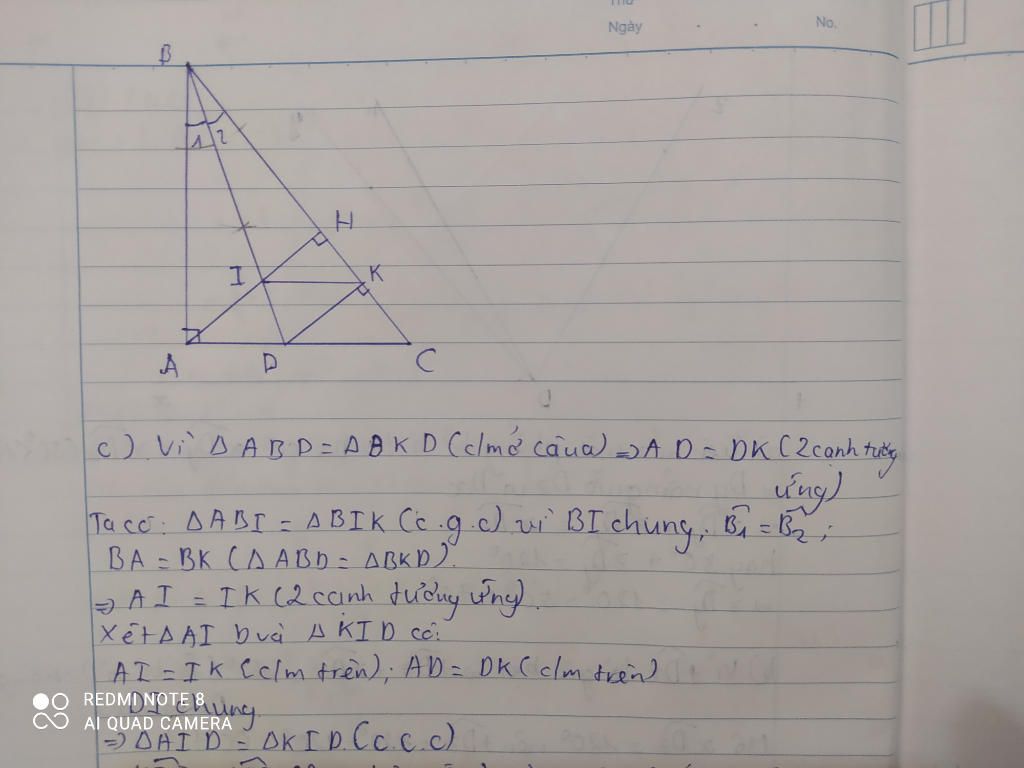 Thứ
Ngày . . No.
B
1 2
H
I K
A D C
c). Vì Δ ABD = ΔBKD (c/m ở câu a) ⇒ AD = DK (2 cạnh tương
ứng)
Ta có: ΔABI = ΔBIK (c.g.c) vì BI chung, B̂1 = B̂2;
BA = BK (ΔABD = ΔBKD).
⇒ AI = IK (2 cạnh tương ứng).
Xét ΔAI D và ΔKID có:
AI = IK (c/m trên); AD = DK (c/m trên)
DI chung.
⇒ ΔAID = ΔKID. (c.c.c)
REDMI NOTE 8
AI QUAD CAMERA